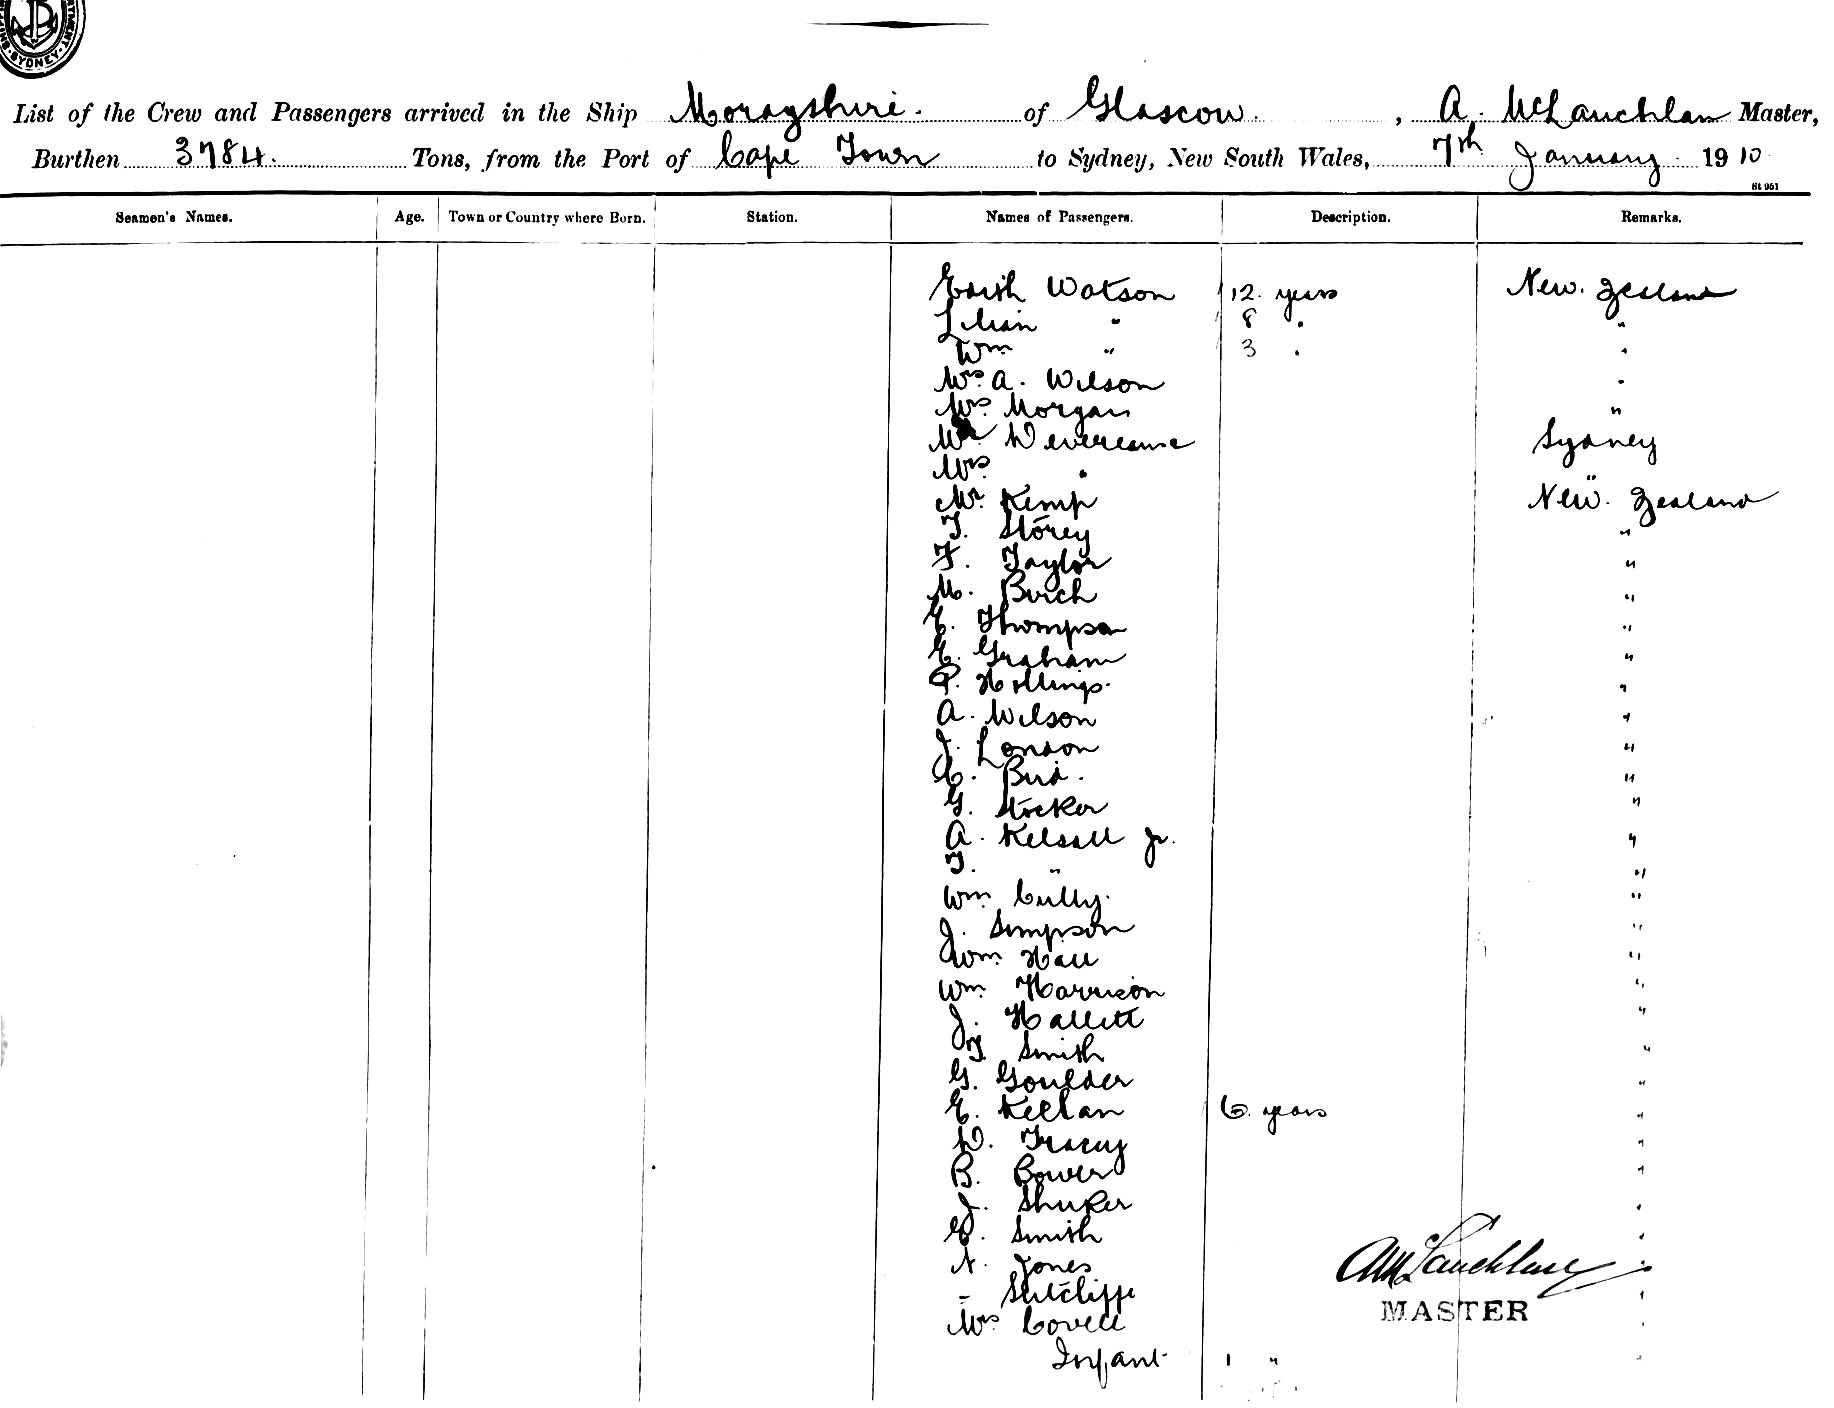 SYDNEY
List of the Crew and Passengers arrived in the Ship Morayshire. of Glascow. , A. McLauchlan Master,
Burthen 3784. Tons, from the Port of Cape Town to Sydney, New South Wales, 7th January 1910
St 951
Seamen's Names. Age. Town or Country where Born. Station. Names of Passengers. Description. Remarks.
Edith Watson 12 years New. Zealand
Lilian " 8 " "
Wm " 3 " "
Mrs A. Wilson "
Mrs Morgan "
Mr Sydney
Mrs " "
Mr. Kemp New. Zealand
T. Storey "
F. Taylor "
M. Birch "
E. Thompson "
E. Graham "
P. Hollings. "
A. Wilson "
J. London "
C. Bird. "
G. Stocker "
A. Kelsall Jr. "
T. " "
Wm Cully. "
J. Simpson "
Wm. Hall "
Wm. Harrison "
J. Hallett "
Smith "
G. Goulder "
E. Keelan 6 years "
D. Tracey "
B. Bower "
J. Shuker "
E. Smith "
A. Jones "
- Sutcliffe "
A McLauchlan
MASTER
Mrs Covell "
Infant 1 " "